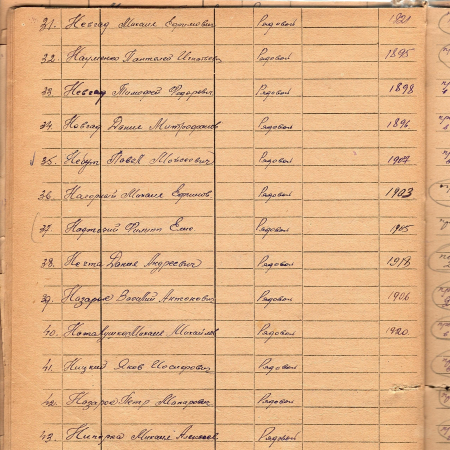 31. Невгад Михаил Ефимович Рядовой 1921
32. Науменко Пантелей Игнатович Рядовой 1895
33. Невгад Тимофей Федорович Рядовой 1898
34. Невгад Данил Митрофанов Рядовой 1896
35. Павел Моисеевич Рядовой 1907
36. Нагорный Михаил Ефимов. Рядовой 1903
37. Филипп Рядовой 1905
38. Данил Андреевич Рядовой 1918
39. Назаров Василий Антонович Рядовой 1906
40. Михаил Михайлов Рядовой 1920
41. Ницкий Яков Иосифович Рядовой
42. Назаров Петр Макарович Рядовой
43. Ничорка Михаил Алексеев Рядовой